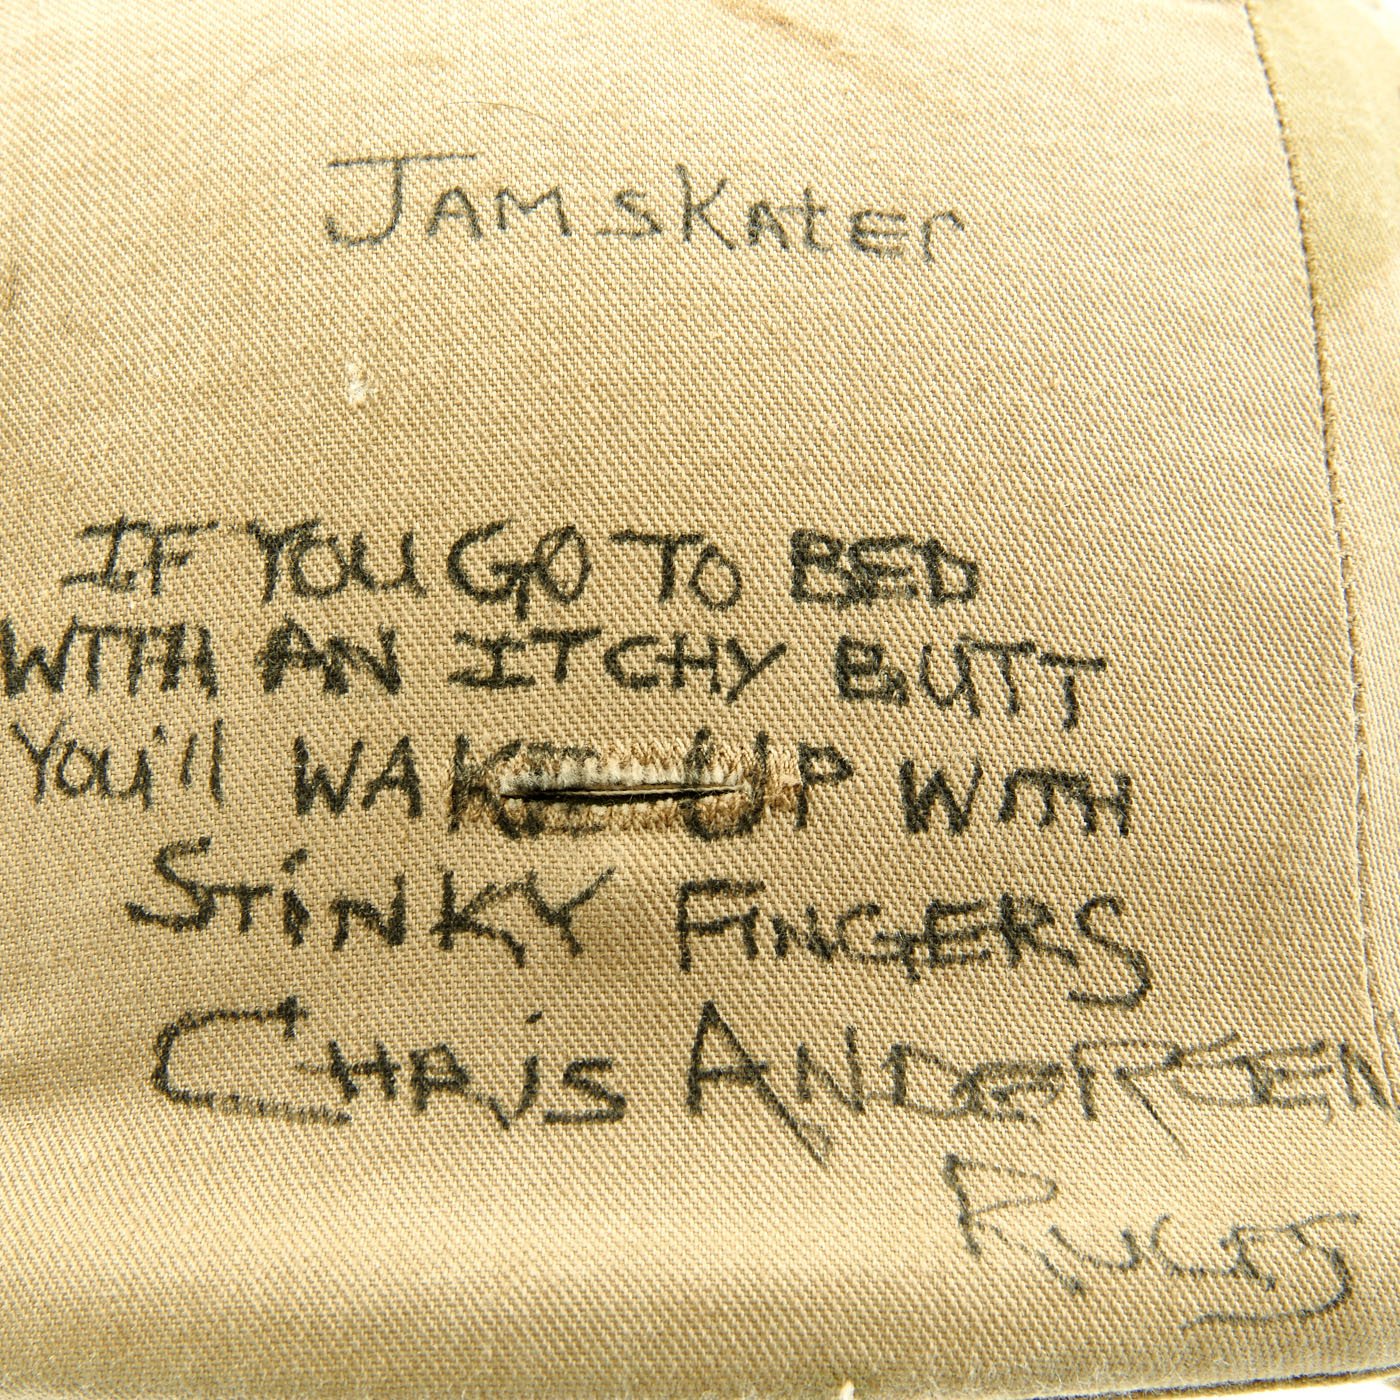 JAMSKATER
IF YOU GO TO BED
WITH AN ITCHY BUTT
YOU'll WAKE UP WITH
STINKY FINGERS
CHRIS ANDERSEN
RULES